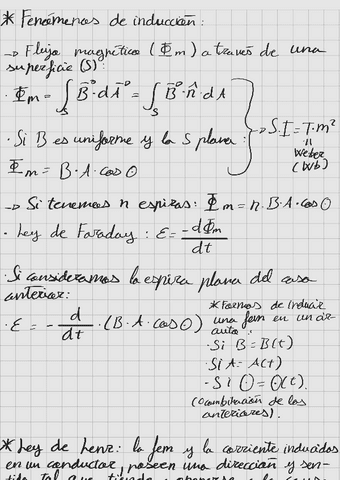 * Fenómenos de inducción:
→ Flujo magnético (Φm) a través de una
superficie (S):
· Φm = ∫S B⃗·dA⃗ = ∫S B⃗·n̂·dA
· Si B es uniforme y la S plana:
Φm = B·A·cos θ
→ S.I = T·m²
=
Weber
(Wb)
→ Si tenemos n espiras: Φm = n·B·A·cos θ
· Ley de Faraday: ε = -dΦm/dt
· Si consideramos la espira plana del caso
anterior:
· ε = - d/dt · (B·A·cos θ)
* Formas de inducir
una fem en un cir-
cuito:
· Si B = B(t)
· Si A = A(t)
· Si θ = θ(t).
(O combinación de las
anteriores).
* Ley de Lenz: la fem y la corriente inducidas
en un conductor, poseen una dirección y sen-
tido tal que tiende a oponerse a la